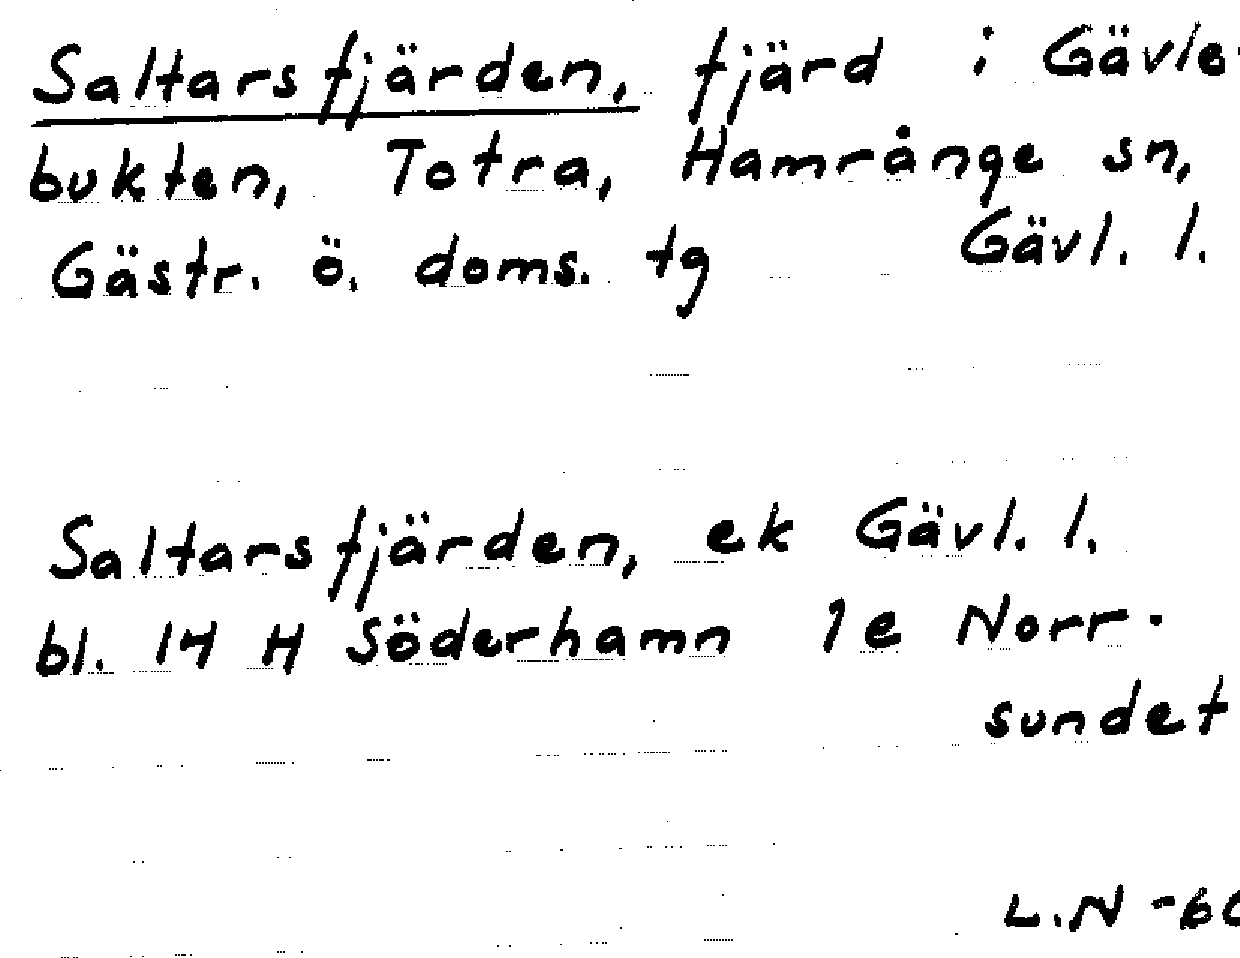 Saltarsfjärden, fjärd i Gävle-
bukten, Totra, Hamrånge sn,
Gästr. ö. doms. tg Gävl. l.
Saltarsfjärden, ek Gävl. l.
bl. 14 H Söderhamn 1e Norr-
sundet
L.N -60